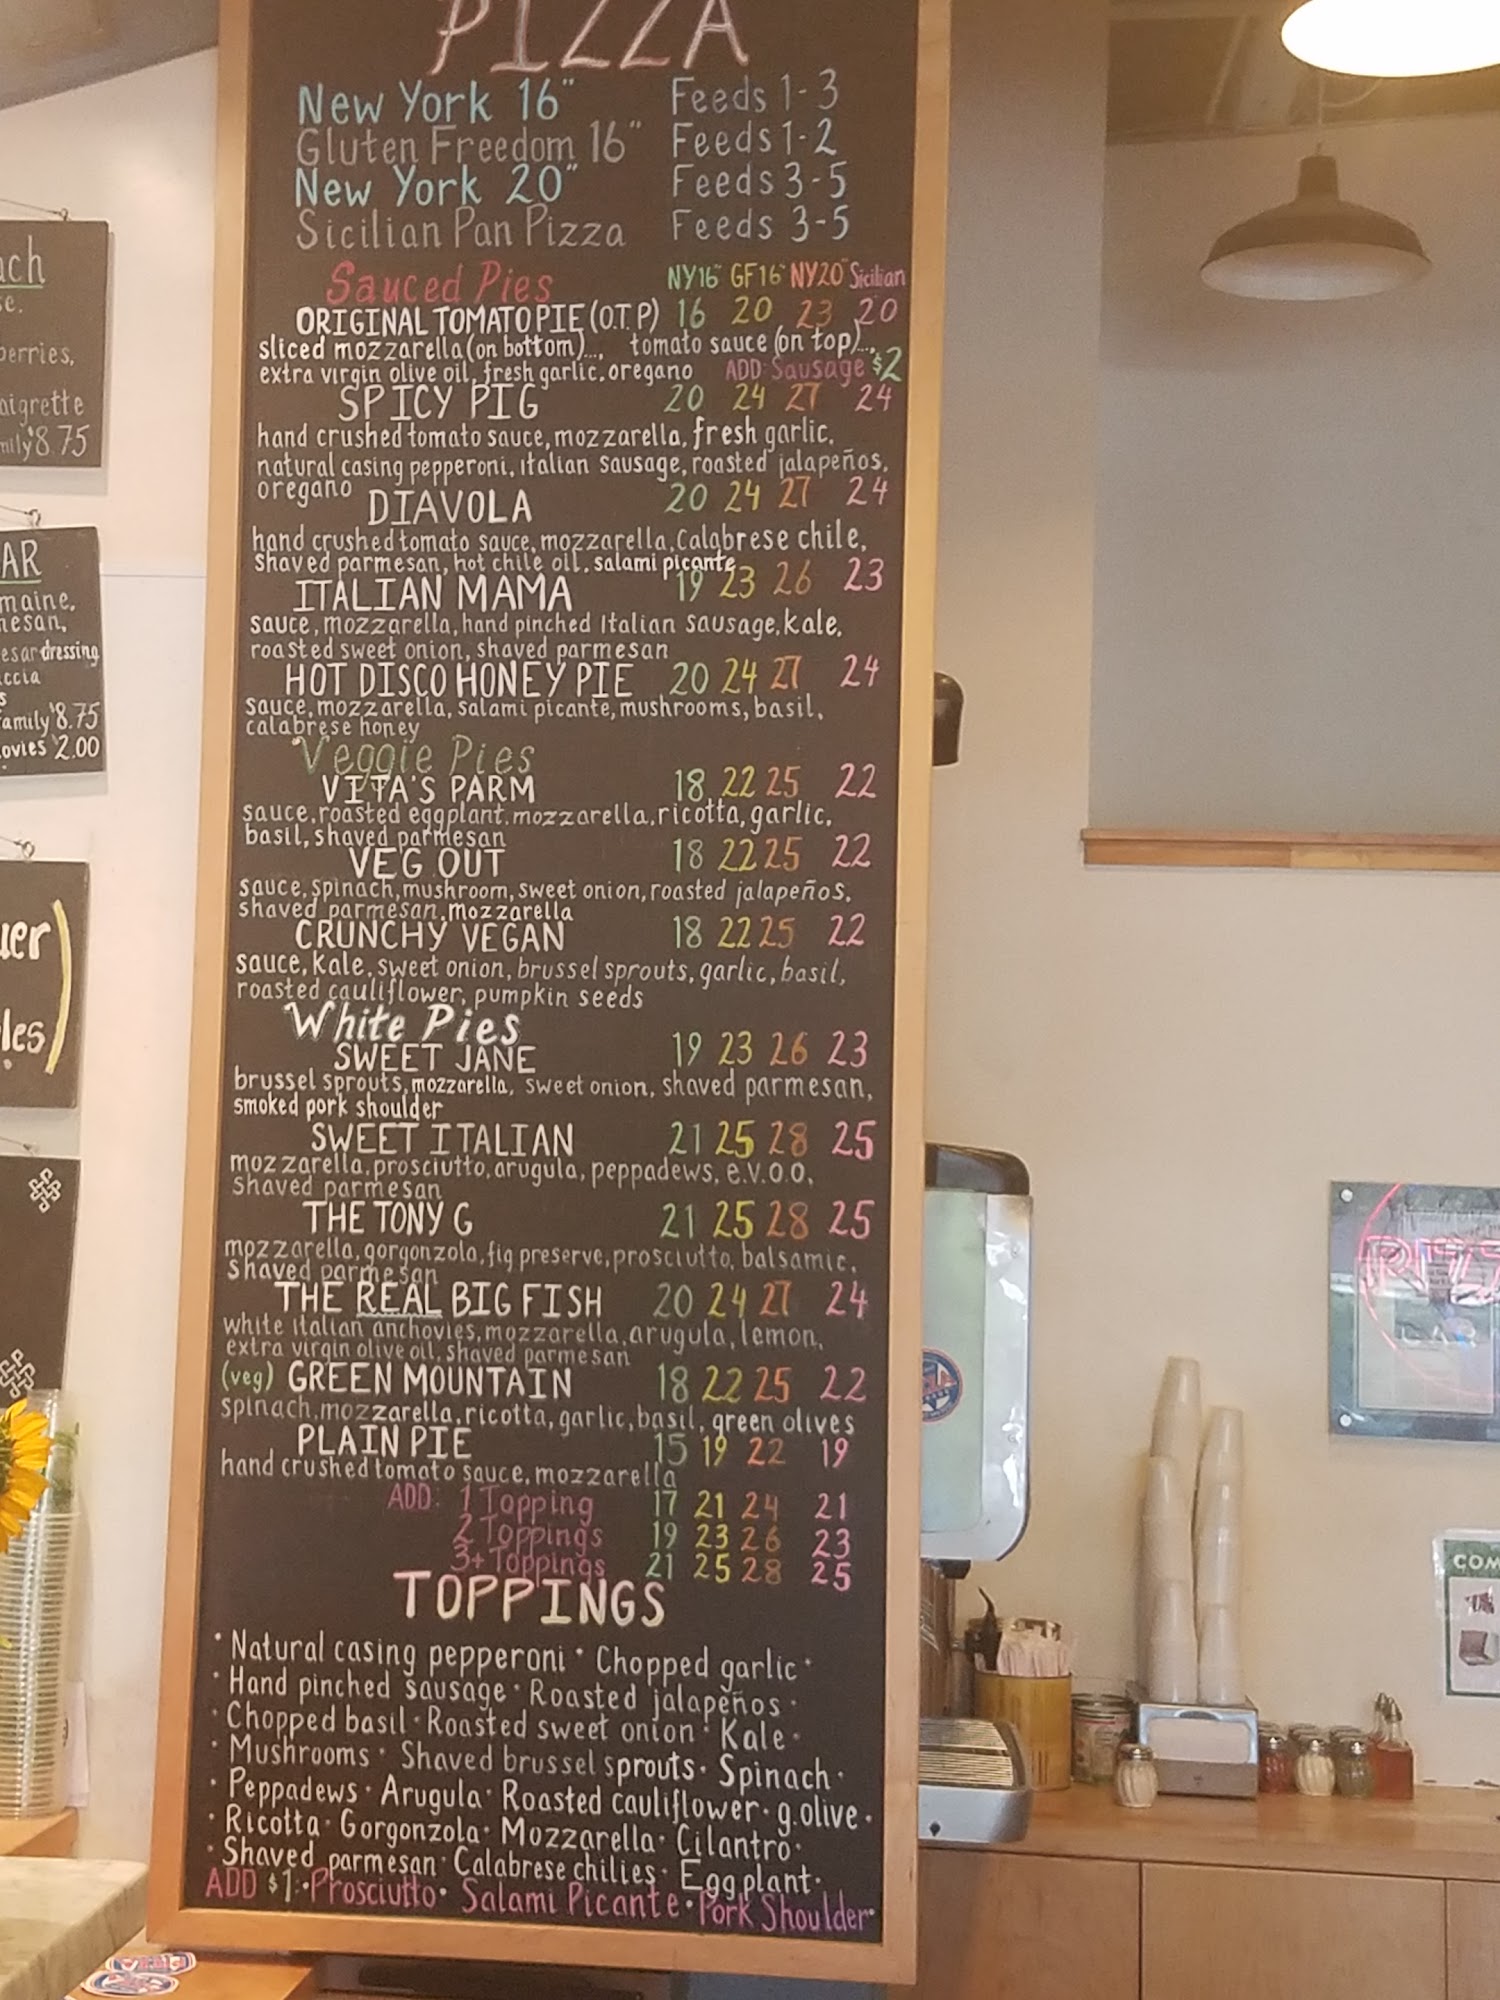 PIZZA
New York 16" Feeds 1-3
Gluten Freedom 16" Feeds 1-2
New York 20" Feeds 3-5
Sicilian Pan Pizza Feeds 3-5
Sauced Pies NY16" GF16" NY20" Sicilian
ORIGINAL TOMATO PIE (O.T.P) 16 20 23 20
sliced mozzarella (on bottom)..., tomato sauce (on top)...,
extra virgin olive oil, fresh garlic, oregano ADD: Sausage $2
SPICY PIG 20 24 27 24
hand crushed tomato sauce, mozzarella, fresh garlic,
natural casing pepperoni, italian sausage, roasted jalapeños,
oregano
DIAVOLA 20 24 27 24
hand crushed tomato sauce, mozzarella, Calabrese chile,
shaved parmesan, hot chile oil, salami picante
ITALIAN MAMA 19 23 26 23
sauce, mozzarella, hand pinched Italian sausage, kale,
roasted sweet onion, shaved parmesan
HOT DISCO HONEY PIE 20 24 27 24
sauce, mozzarella, salami picante, mushrooms, basil,
calabrese honey
Veggie Pies
VITA'S PARM 18 22 25 22
sauce, roasted eggplant, mozzarella, ricotta, garlic,
basil, shaved parmesan
VEG OUT 18 22 25 22
sauce, spinach, mushroom, sweet onion, roasted jalapeños,
shaved parmesan, mozzarella
CRUNCHY VEGAN 18 22 25 22
sauce, kale, sweet onion, brussel sprouts, garlic, basil,
roasted cauliflower, pumpkin seeds
White Pies
SWEET JANE 19 23 26 23
brussel sprouts, mozzarella, sweet onion, shaved parmesan,
smoked pork shoulder
SWEET ITALIAN 21 25 28 25
mozzarella, prosciutto, arugula, peppadews, e.v.o.o,
shaved parmesan
THE TONY G 21 25 28 25
mozzarella, gorgonzola, fig preserve, prosciutto, balsamic,
shaved parmesan
THE REAL BIG FISH 20 24 27 24
white italian anchovies, mozzarella, arugula, lemon,
extra virgin olive oil, shaved parmesan
(veg) GREEN MOUNTAIN 18 22 25 22
spinach, mozzarella, ricotta, garlic, basil, green olives
PLAIN PIE 15 19 22 19
hand crushed tomato sauce, mozzarella
ADD: 1 Topping 17 21 24 21
2 Toppings 19 23 26 23
3+ Toppings 21 25 28 25
TOPPINGS
• Natural casing pepperoni • Chopped garlic •
• Hand pinched sausage • Roasted jalapeños •
• Chopped basil • Roasted sweet onion • Kale •
• Mushrooms • Shaved brussel sprouts • Spinach •
• Peppadews • Arugula • Roasted cauliflower • g.olive •
• Ricotta • Gorgonzola • Mozzarella • Cilantro •
• Shaved parmesan • Calabrese chilies • Eggplant •
ADD $1: • Prosciutto • Salami Picante • Pork Shoulder •
ach
se.
berries,
aigrette
mily $8.75
AR
maine,
mesan,
esar dressing
ccia
s
family $8.75
ovies $2.00
uer
les)
COM